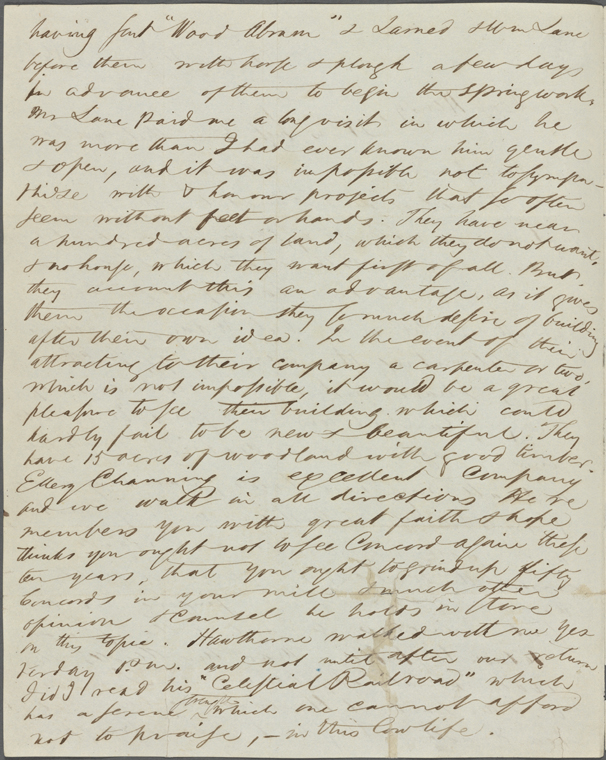 having sent "Wood Abram" & Larned & Wm Lane
before them with horse & plough a few days
in advance of them to begin the spring work.
Mr Lane paid me a long visit in which he
was more than I had ever known him gentle
& open, and it was impossible not to sympa-
thise with & honour projects that so often
seem without feet or hands. They have near
a hundred acres of land, which they do not want,
& no house, which they want first of all. But
they account this an advantage, as it gives
them the occasion they so much desire of building
after their own idea. In the event of their
attracting to their company a carpenter or two,
which is not impossible, it would be a great
pleasure to see their building which could
hardly fail to be new & beautiful. They
have 15 acres of woodland with good timber.
Ellery Channing is excellent company
and we walk in all directions He re
members you with great faith & hope
thinks you ought not to see Concord again these
ten years, that you ought to grind up fifty
Concords in your mill & much other
opinion & counsel he holds in store
on this topic. Hawthorne walked with me yes
terday p.m. and not until after our return
did I read his "Celestial Railroad" which
has a serene strength which one cannot afford
not to praise, – in this low life.